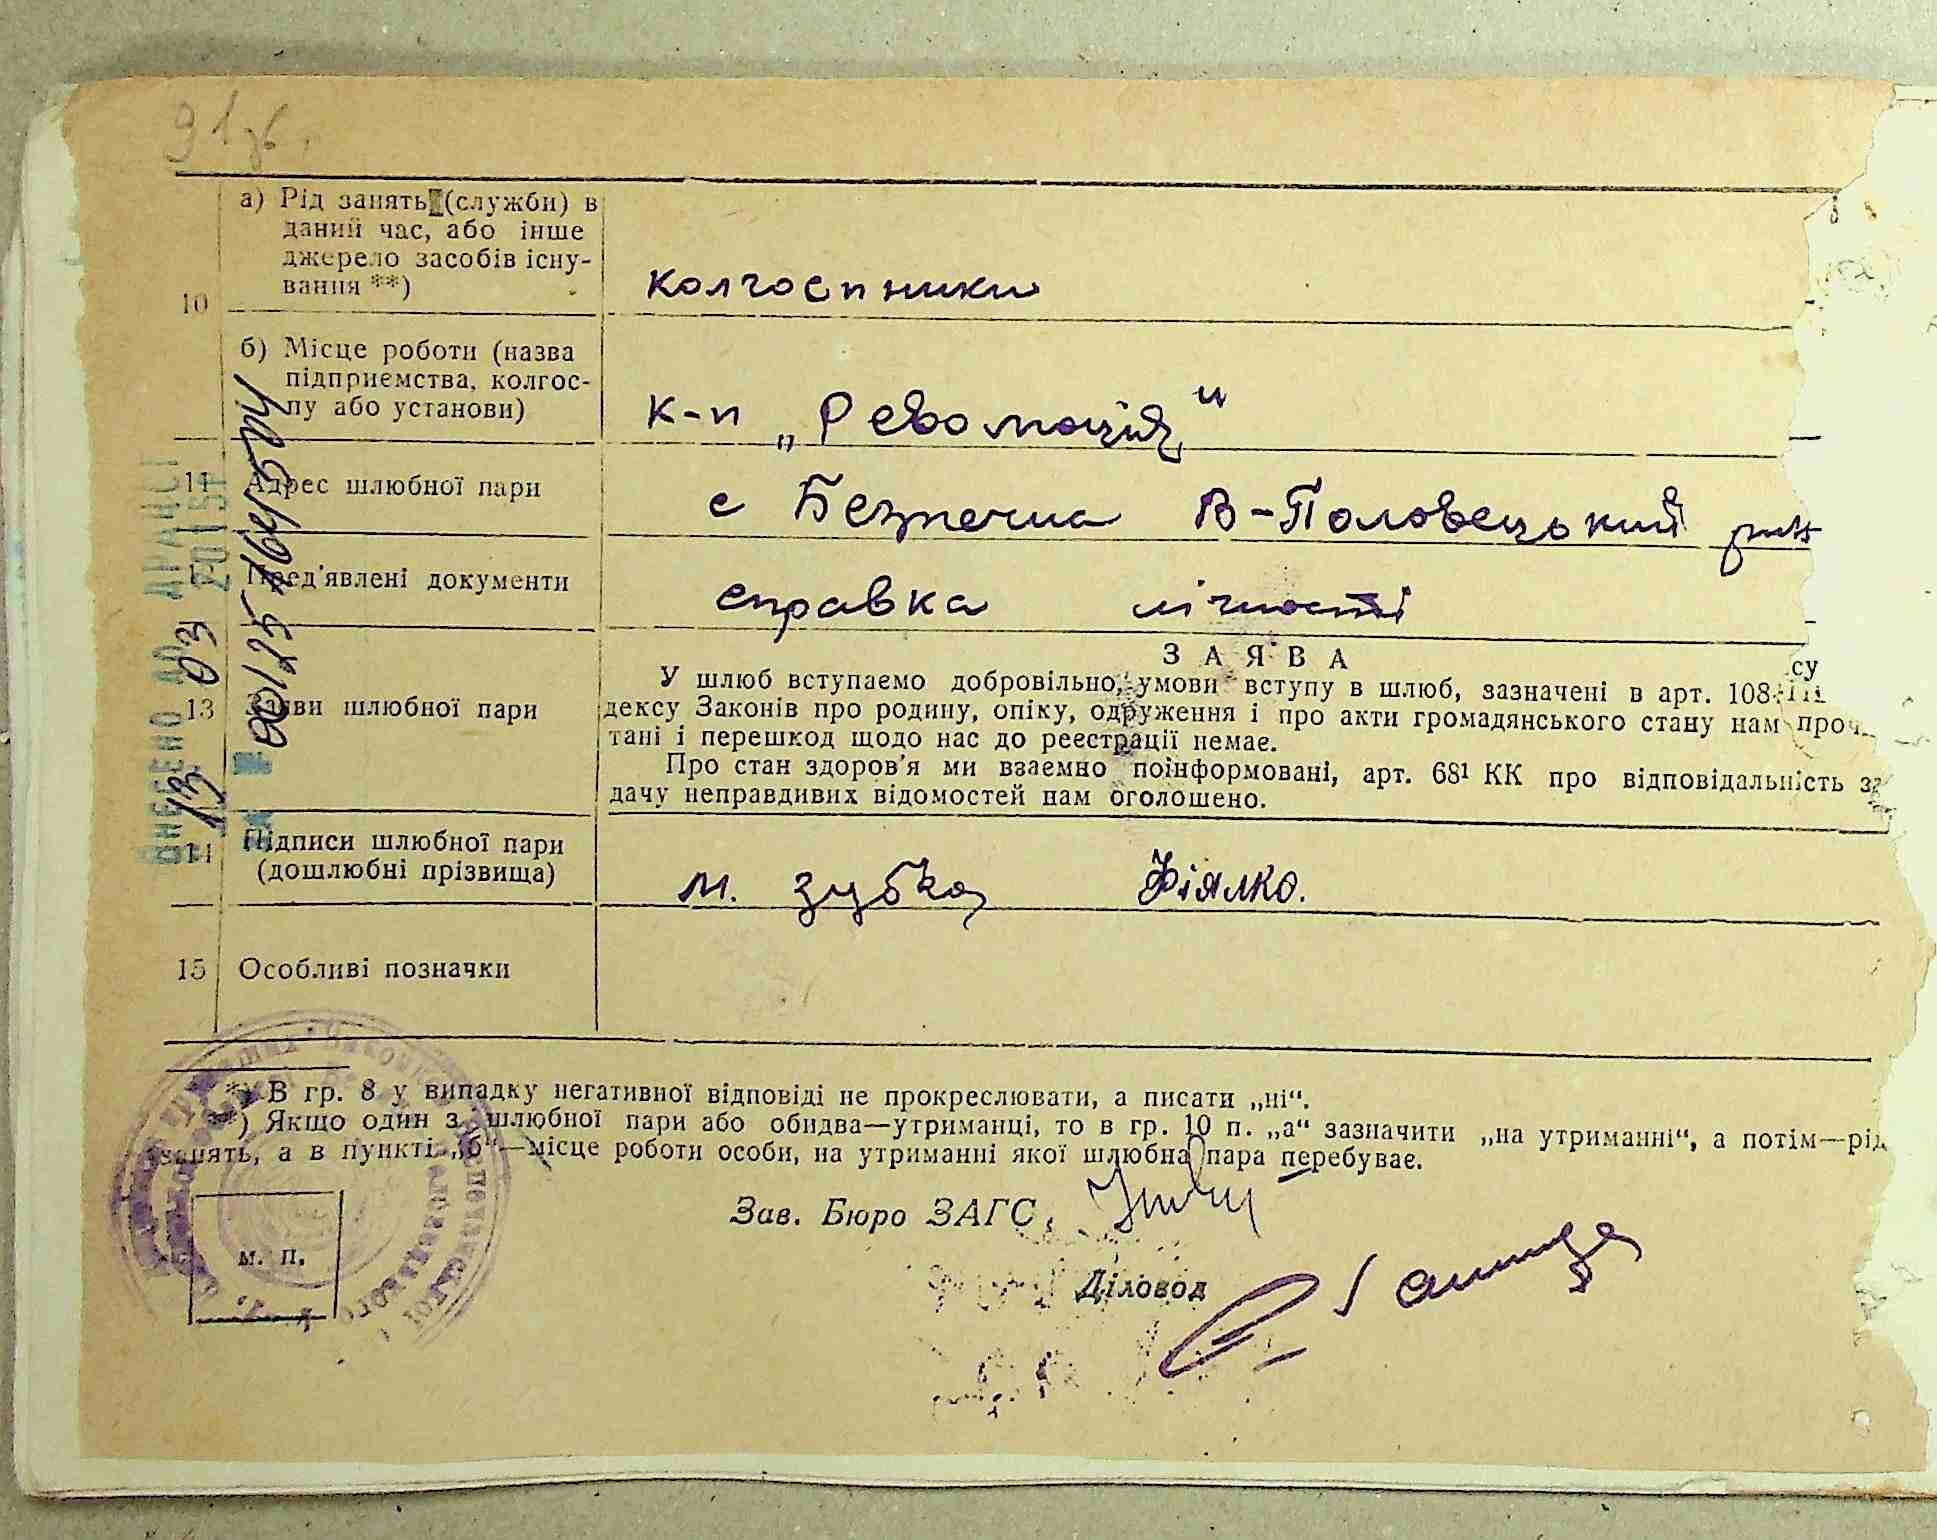 91зв.
а) Рід занять (служби) в
даний час, або інше
джерело засобів існу-
вання **)
10
колгоспники
б) Місце роботи (назва
підприємства, колгос-
пу або установи)
к-п „Революція"
11 Адрес шлюбної пари
с Безпечна В-Половецький р-н
Пред'явлені документи
справка лічності
ЗАЯВА
13 Заяви шлюбної пари
У шлюб вступаємо добровільно, умови вступу в шлюб, зазначені в арт. 108-111
су
дексу Законів про родину, опіку, одруження і про акти громадянського стану нам проч
тані і перешкод щодо нас до реєстрації немає.
Про стан здоров'я ми взаємно поінформовані, арт. 68¹ КК про відповідальність за
дачу неправдивих відомостей нам оголошено.
14 Підписи шлюбної пари
(дошлюбні прізвища)
М. Зубко Фіялко.
15 Особливі позначки
*) В гр. 8 у випадку негативної відповіді не прокреслювати, а писати „ні“.
**) Якщо один з шлюбної пари або обидва—утриманці, то в гр. 10 п. „а“ зазначити „на утриманні“, а потім—рід
занять, а в пункті „б“—місце роботи особи, на утриманні якої шлюбна пара перебуває.
Зав. Бюро ЗАГС
м. п.
Діловод
ВНЕСЕНО ДО ДРАЦСГ
13 03 20157
№ 00125716415